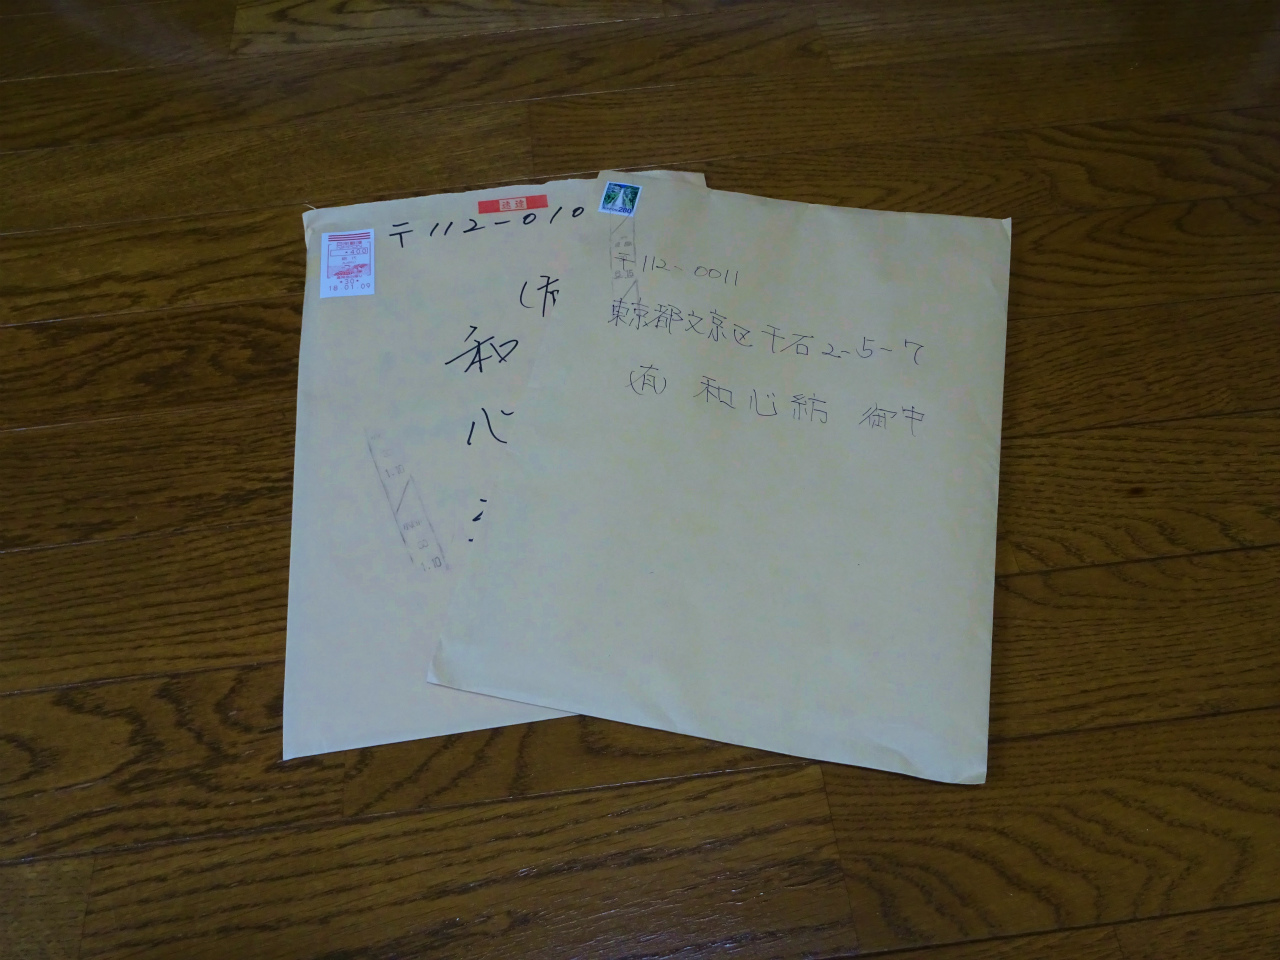 速達
〒112-010
400
18.01.09
和
心
280
〒112-0011
東京都文京区千石2-5-7
(有) 和心紡 御中